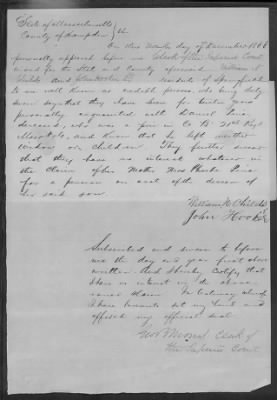 State of Massachusetts
County of Hampden } ss
On this day of December 1866
personally appeared before me Clerk of the Supreme Court
in and for the State and County aforesaid William N
Childs and John Hooker residents of Springfield
to me well known as credible persons, who being duly
sworn say that they have been for years
personally acquainted with Daniel
deceased, who was a private in Co Regt
and know that he left neither
widow or children They further swear
that they have no interest whatever in
the claim of his Mother Mrs Phebe
for a pension on acct of the decease of
her said son
William N Childs
John Hooker
Subscribed and sworn to before
me the day and year first above
written And I hereby certify that
I have no interest in the above
named claim In testimony whereof
I have hereunto set my hand and
affixed my official seal
Clerk of
the Supreme Court